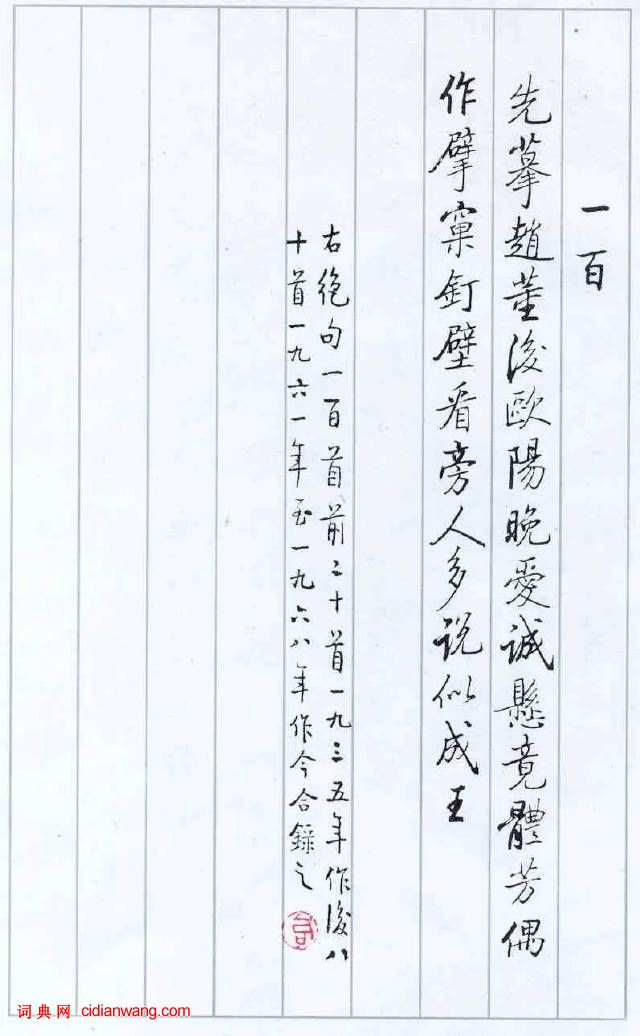 一百
先摹趙董後歐陽晚愛誠懸竟體芳偶
作擘窠釘壁看旁人多说似成王
右絶句一百首前二十首一九三五年作後八
十首一九六一年至一九六八年作今合錄之
词典网 cidianwang.com